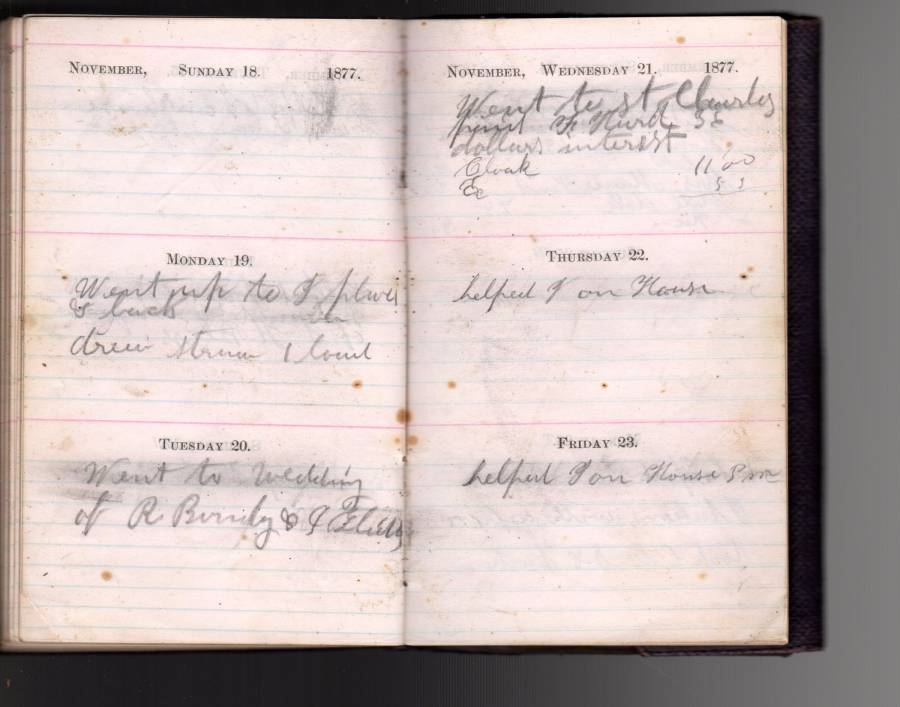 NOVEMBER, SUNDAY 18. 1877.
MONDAY 19.
Went up to J
& back
drew straw 1 load
TUESDAY 20.
Went to wedding
of R & J
NOVEMBER, WEDNESDAY 21. 1877.
Went to st Charles
dollars interest
Cloak 11 00
THURSDAY 22.
helped J on House
FRIDAY 23.
helped J on House